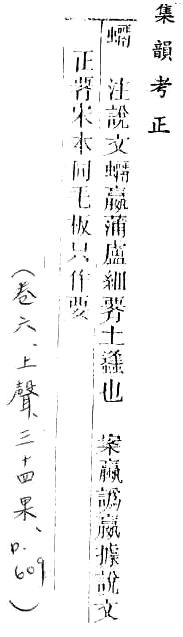 集韻考正
蠣 注說文蠣蠃蒲盧細䙅土蠭也 案蠃譌嬴據說文
正䙅宋本同毛板只作要
(卷六、上聲、三十四果、p.609)